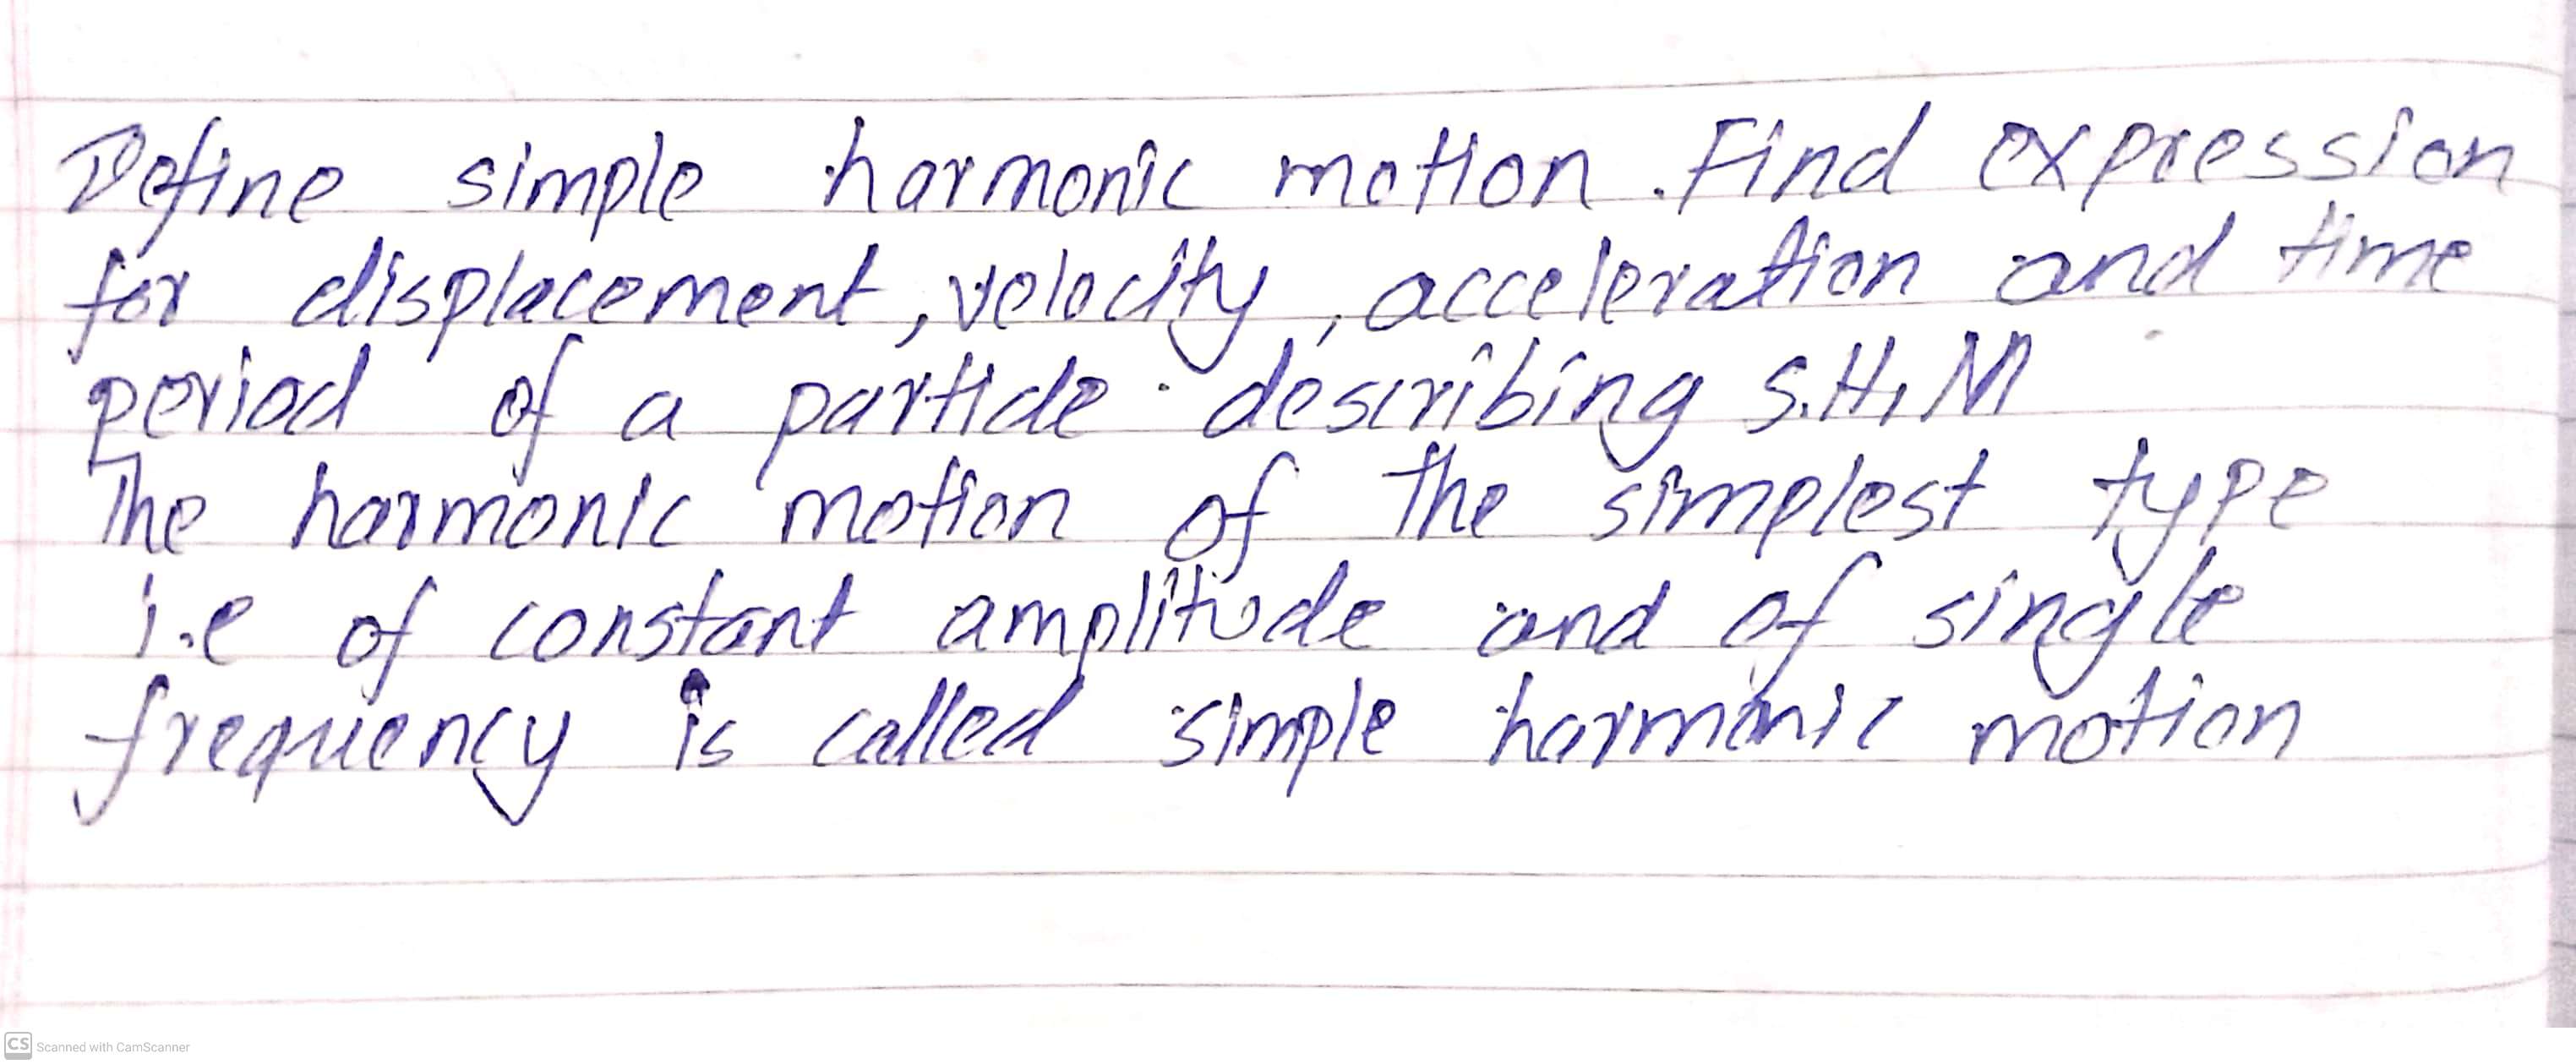 Define simple harmonic motion. Find expression
for displacement, velocity, acceleration and time
period of a particle describing S.H.M
The harmonic motion of the simplest type
i.e of constant amplitude and of single
frequency is called simple harmonic motion
CS Scanned with CamScanner